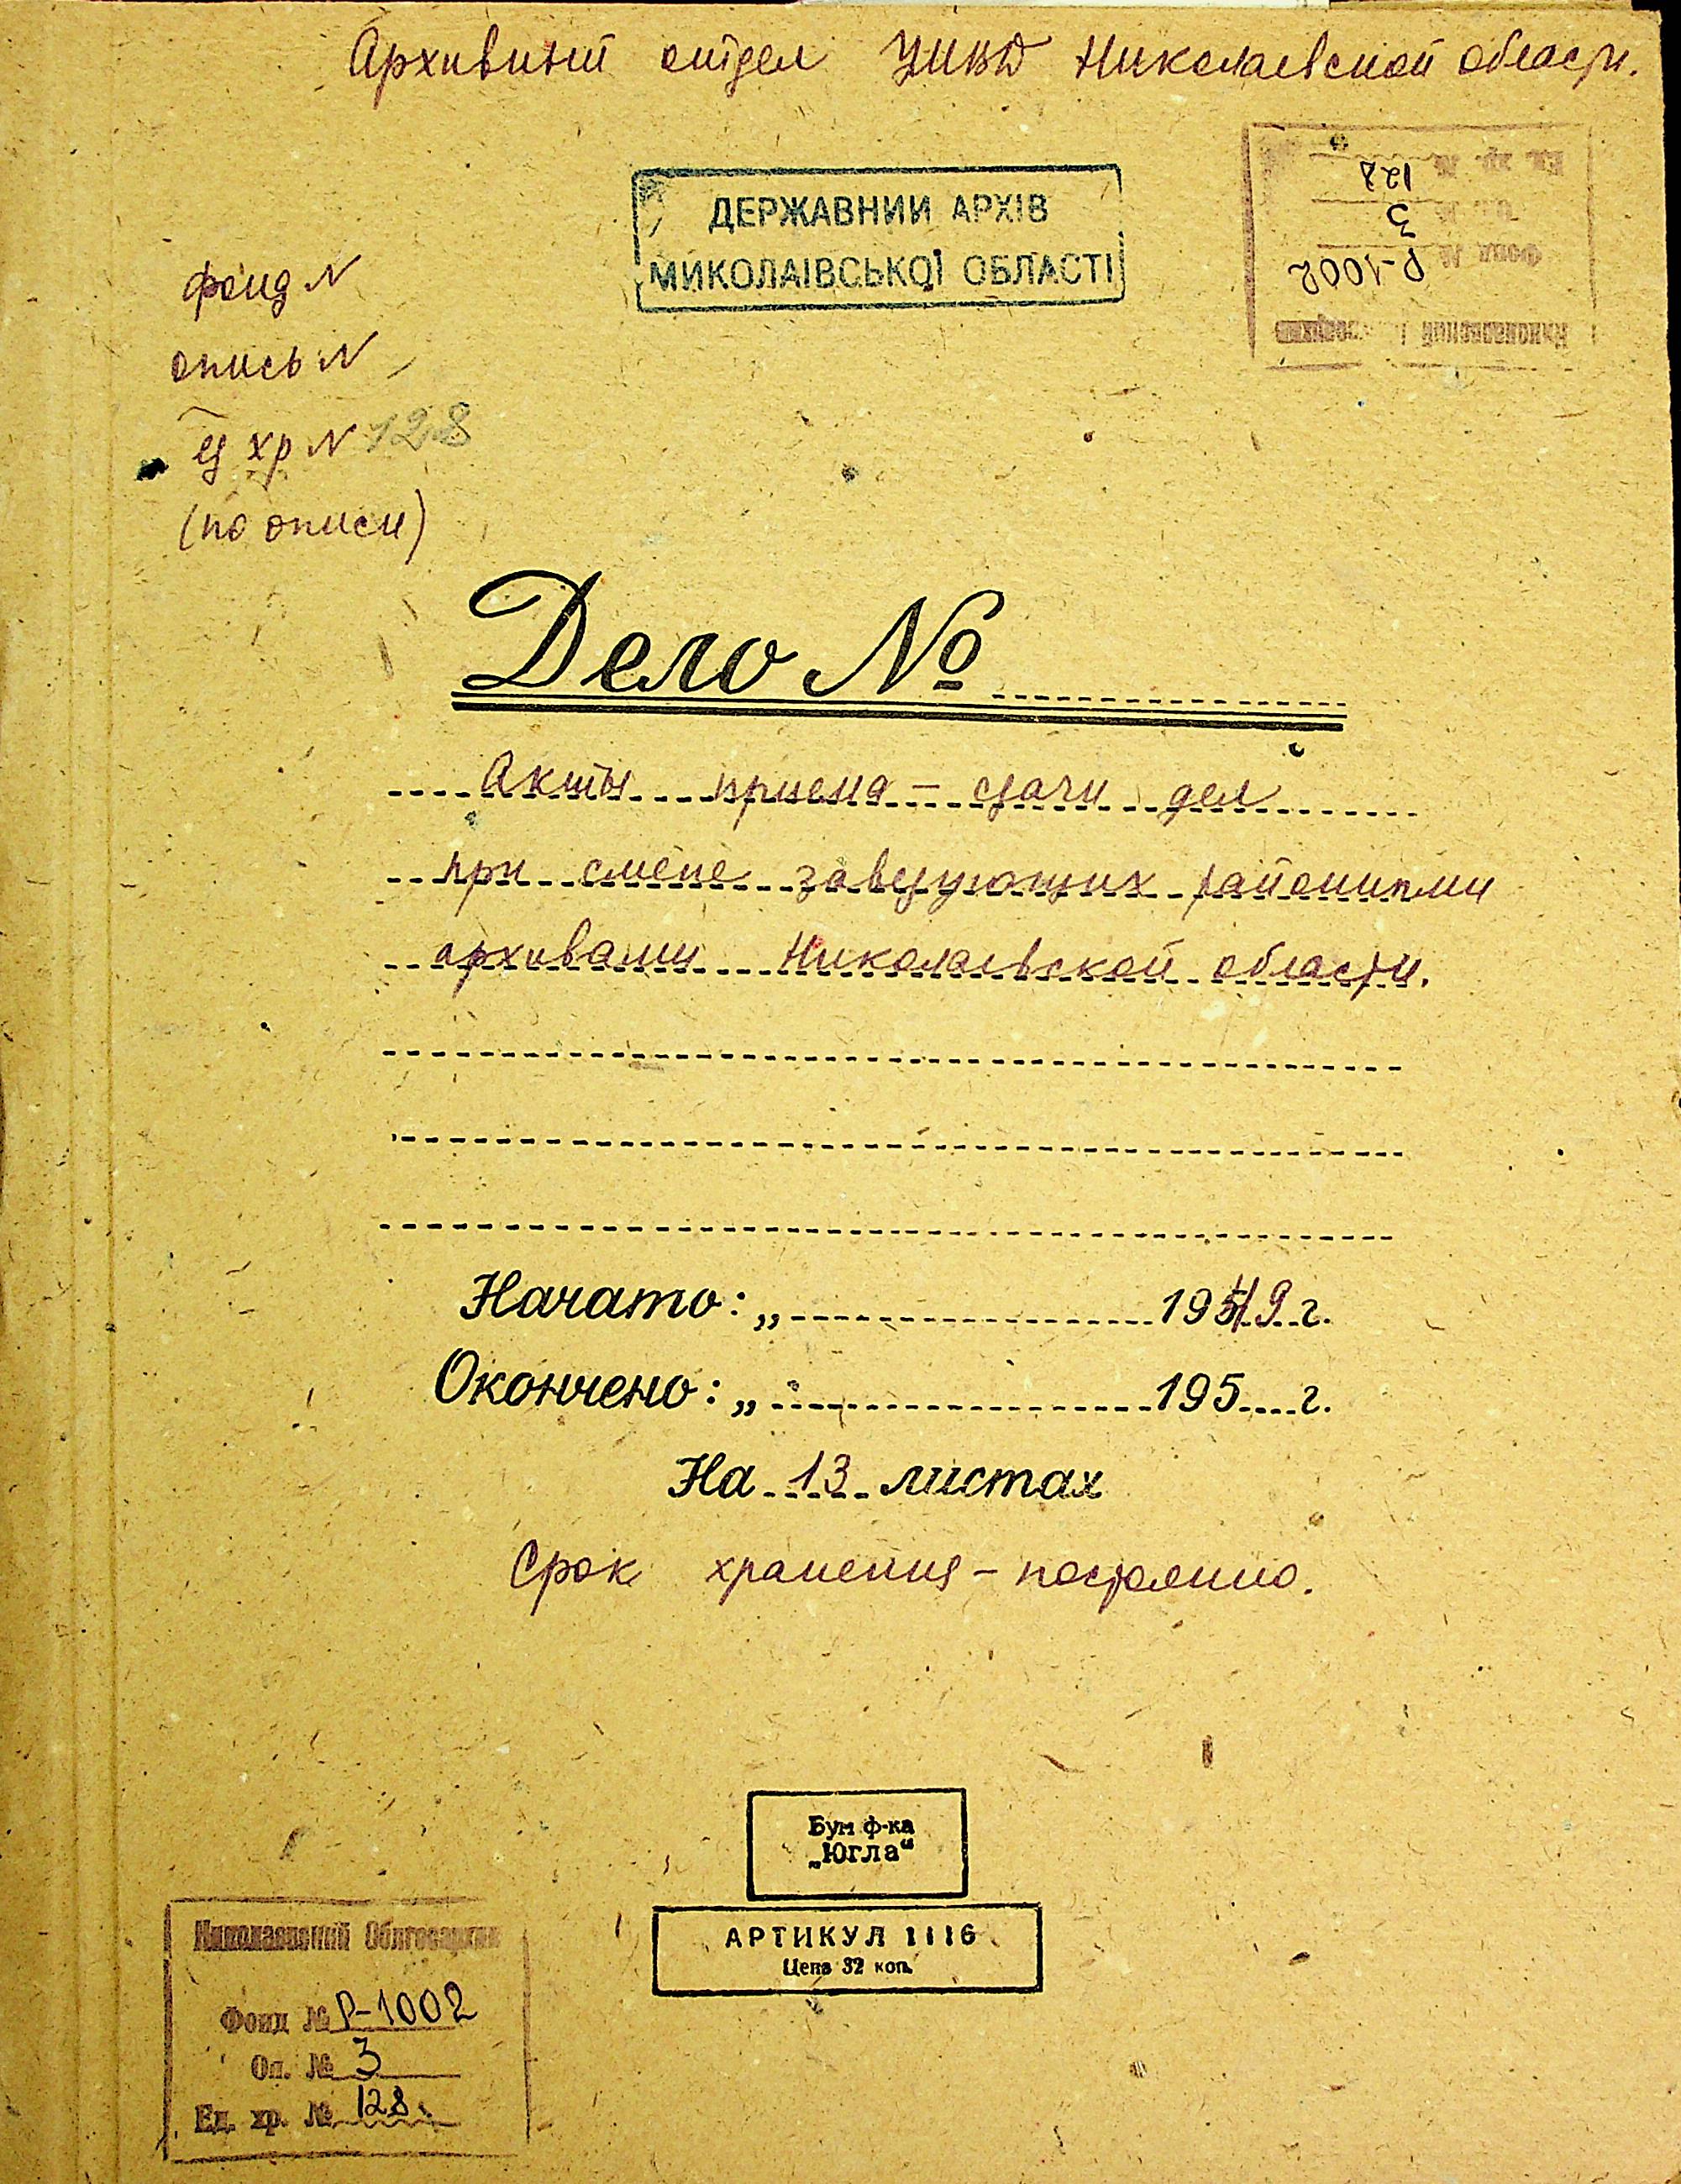 Архивный отдел УМВД Николаевской области.
ДЕРЖАВНИЙ АРХІВ
МИКОЛАЇВСЬКОЇ ОБЛАСТІ
Ед. хр. № 128
Оп. № 3
Фонд № Р-1002
Николаевский Облгосархив
фонд N
опись N
ед хр N 128
(по описи)
Дело №
Акты приема - сдачи дел
при смене заведующих районными
архивами Николаевской области.
Начато: „ 1949 г.
Окончено: „ 195 г.
На 13 листах
Срок хранения - постоянно.
Бум ф-ка
„Югла“
АРТИКУЛ 1116
Цена 32 коп.
Николаевский Облгосархив
Фонд № Р-1002
Оп. № 3
Ед. хр. № 128